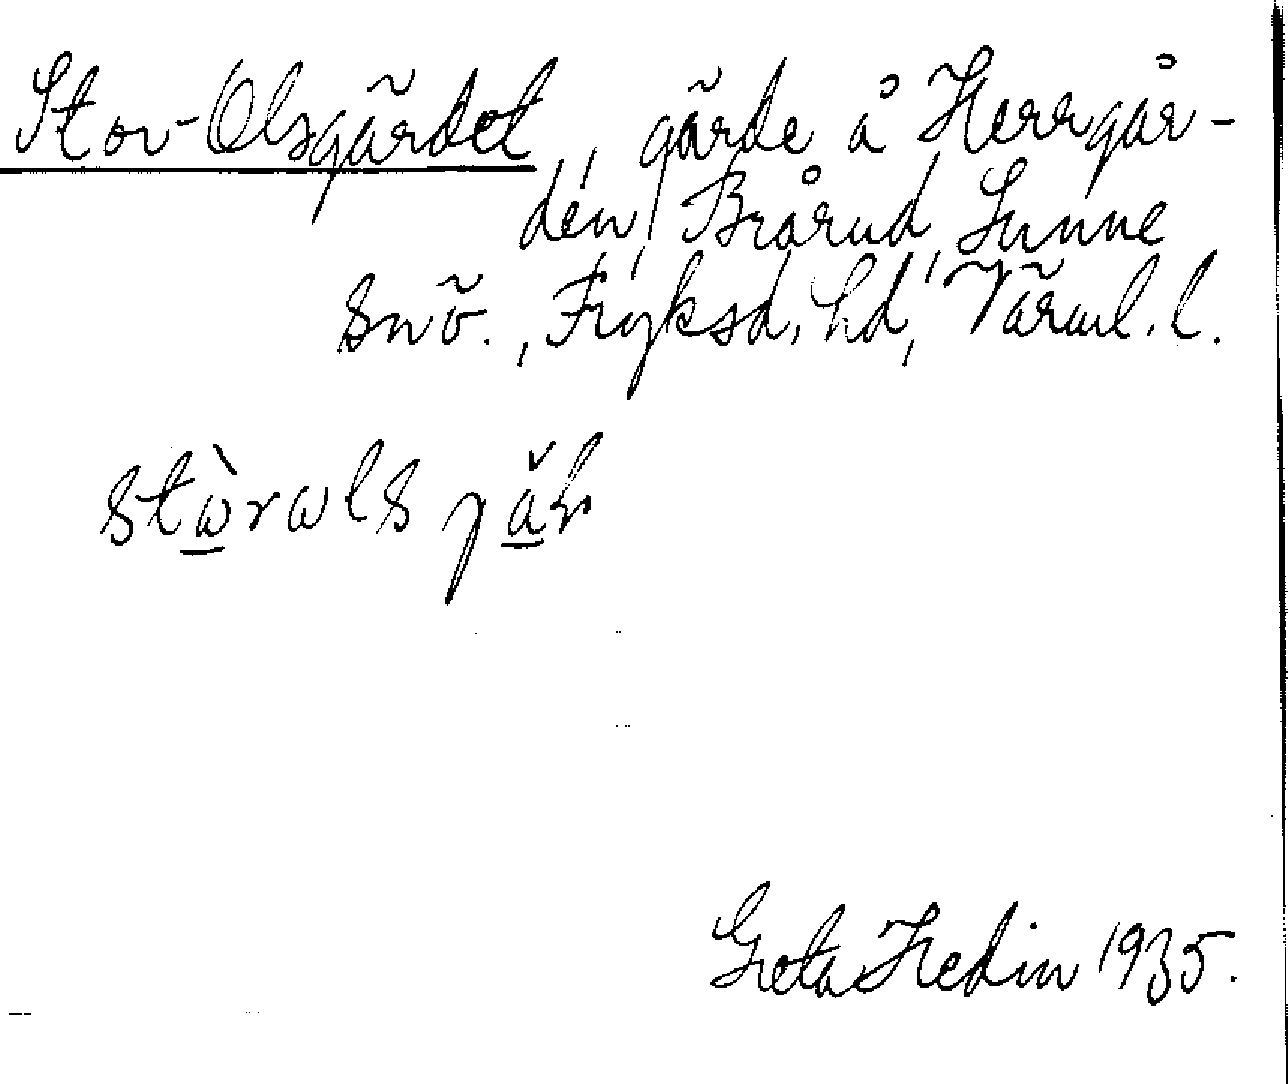 Stor-Olsgärdet, gärde å Herrgår-
den, Brårud, Sunne
snö., Fryksd. hd, Värml. l.
Greta Hedin 1935.